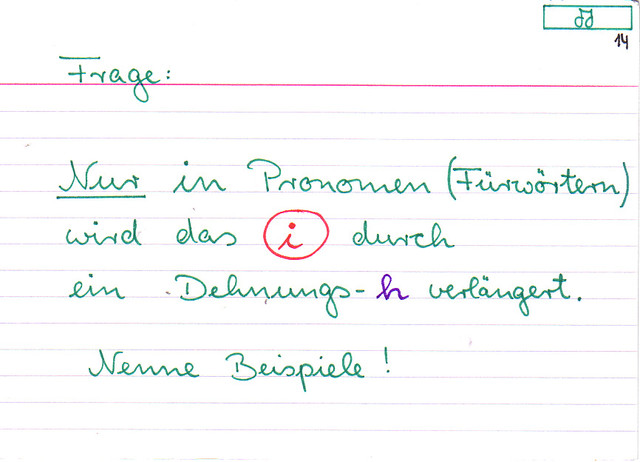 14
Frage:
Nur in Pronomen (Fürwörtern)
wird das i durch
ein Dehnungs-h verlängert.
Nenne Beispiele!